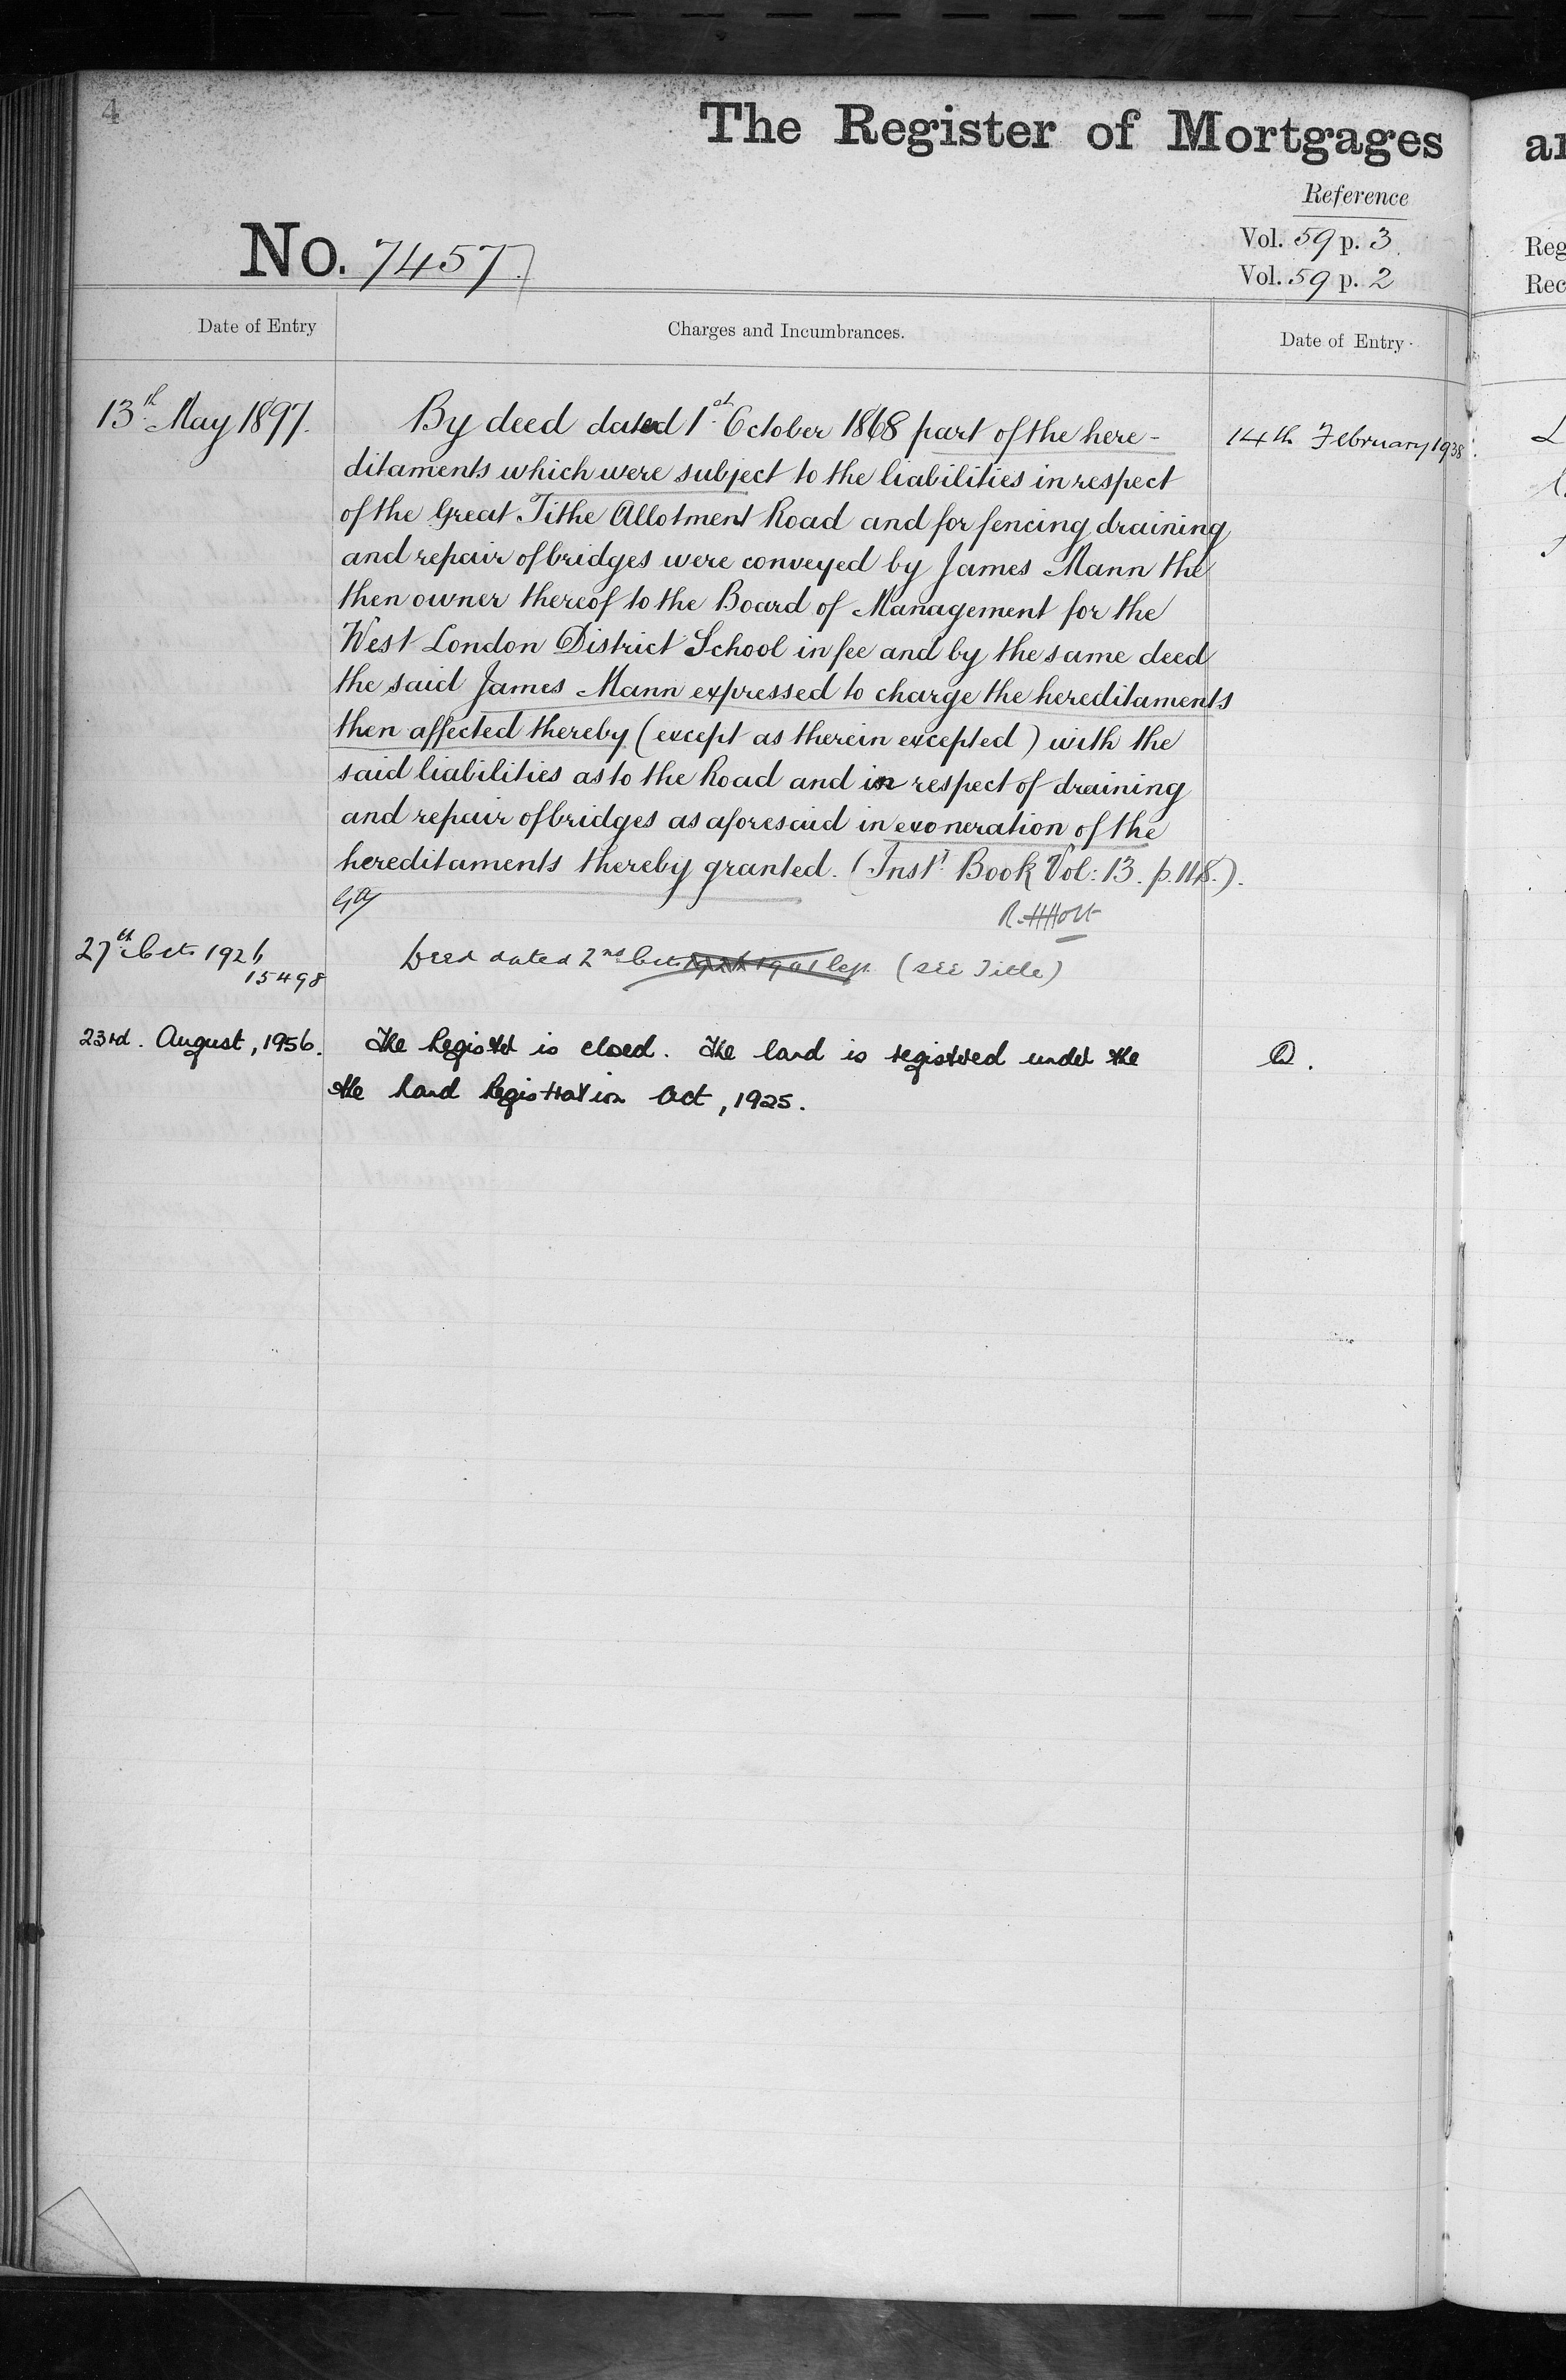 4
The Register of Mortgages
Reference
No. 7457.
Vol. 59 p. 3.
Vol. 59 p. 2
Date of Entry
Charges and Incumbrances.
Date of Entry
13th May 1897.
By deed dated 1st October 1868 part of the here-
ditaments which were subject to the liabilities in respect
of the Great Tithe Allotment Road and for fencing draining
and repair of bridges were conveyed by James Mann the
then owner thereof to the Board of Management for the
West London District School in fee and by the same deed
the said James Mann expressed to charge the hereditaments
then affected thereby (except as therein excepted) with the
said liabilities as to the Road and in respect of draining
and repair of bridges as aforesaid in exoneration of the
hereditaments thereby granted. (Inst. Book Vol: 13. p. 118.).
R.HHolt
14th February 1938
27th Oct 1926
15498
Deed dated 2nd Oct (see Title)
23rd. August, 1956.
The Register is closed. The land is registered under the
the Land Registration Act, 1925.
ar
Reg
Rec